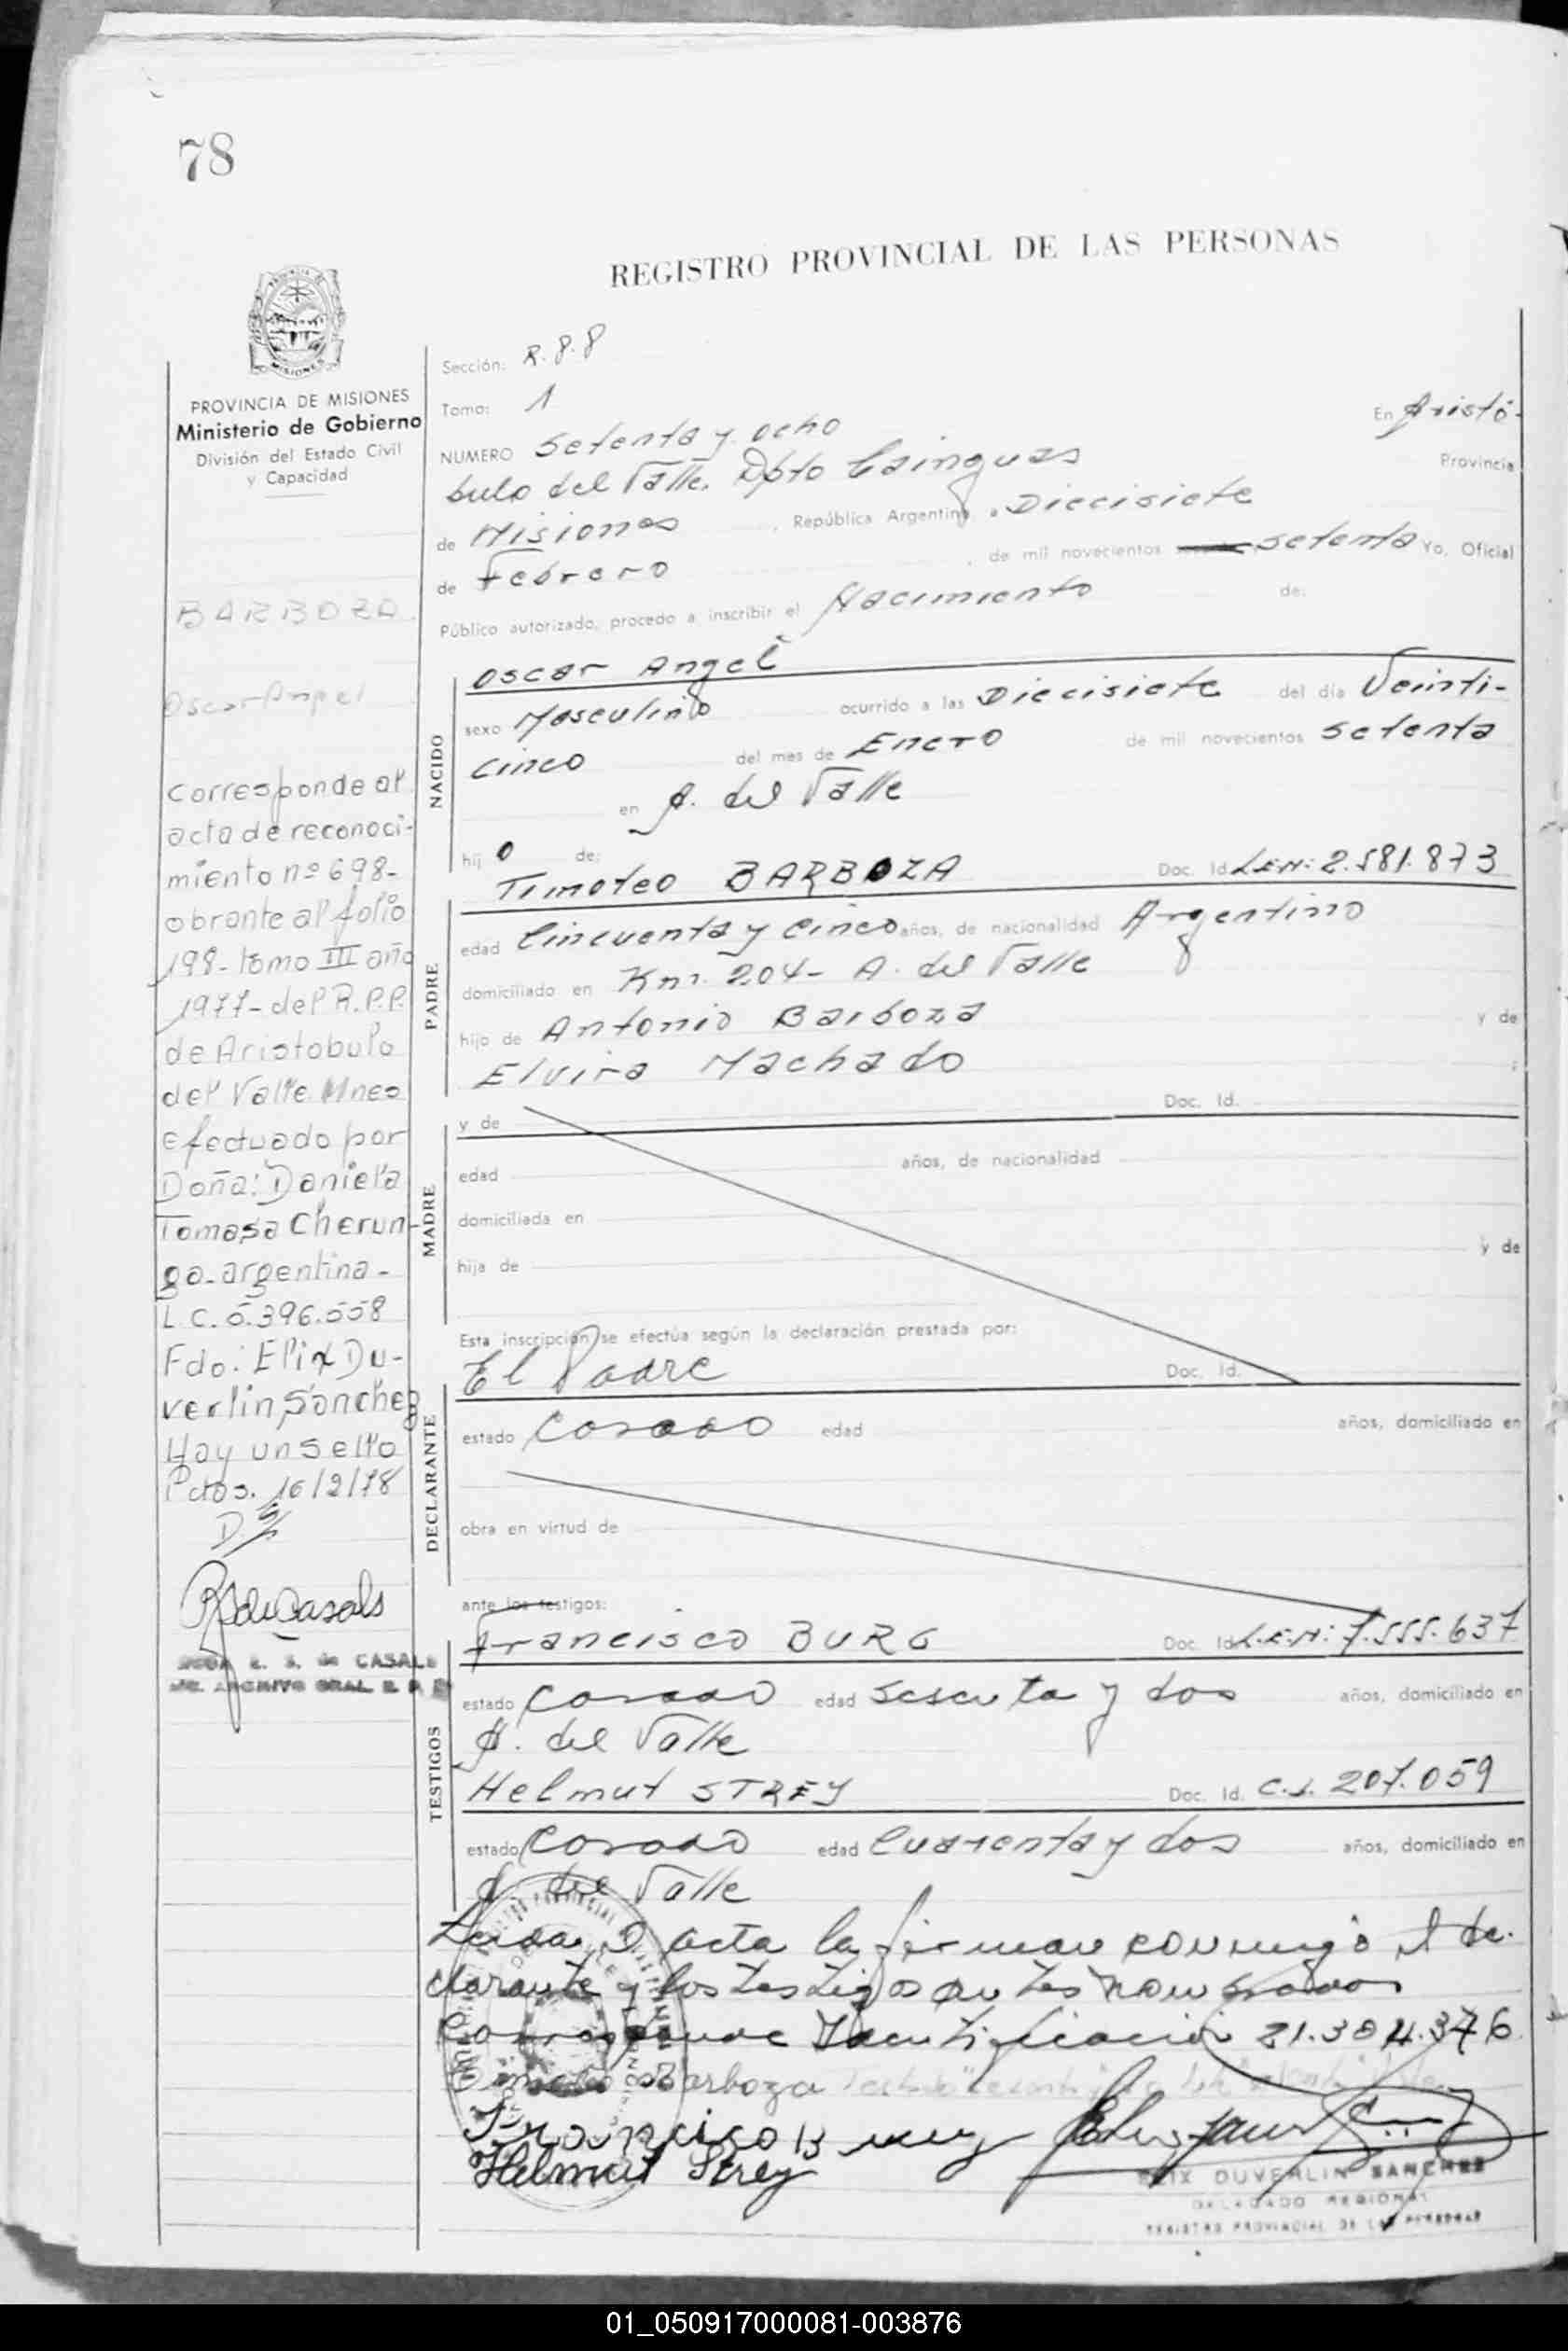 78
REGISTRO PROVINCIAL DE LAS PERSONAS
MISIONES
PROVINCIA DE MISIONES
Ministerio de Gobierno
División del Estado Civil
y Capacidad
BARBOZA
Oscar Angel
Corresponde al
acta de reconoci-
miento nº 698-
obrante al folio
198- tomo III año
1977- del R.P.P.
de Aristobulo
del Valle Mnes
efectuado por
Doña: Daniela
Tomasa Cherun-
go-argentina-
L.C. 5.396.558
Fdo: Elix Du-
verlin Sanchez
Hay un sello
Pdas. 16/2/78
R S de Casals
E. S. de CASALS
ARCHIVO GRAL R P
Sección: R.P.P
Tomo: 1
NUMERO Setenta y ocho En Aristó-
bulo del Valle. Dpto Cainguas Provincia
de Misiones, República Argentina, a Diecisiete
de Febrero, de mil novecientos setenta Yo, Oficial
Público autorizado, procedo a inscribir el Nacimiento de:
NACIDO
Oscar Angel
sexo Masculino ocurrido a las Diecisiete del día Veinti-
cinco del mes de Enero de mil novecientos setenta
en A. del Valle
hijo de:
PADRE
Timoteo BARBOZA Doc. Id L.E.M: 2.581.873
edad Cincuenta y cinco años, de nacionalidad Argentino
domiciliado en Km. 204- A. del Valle
hijo de Antonio Barboza y de
Elvira Machado
MADRE
y de Doc. Id.
edad años, de nacionalidad
domiciliada en
hija de y de
Esta inscripción se efectúa según la declaración prestada por:
DECLARANTE
El Padre Doc. Id.
estado Casado edad años, domiciliado en
obra en virtud de
ante los testigos:
TESTIGOS
Francisco BURG Doc. Id L.E.M: 7.555.637
estado Casado edad sesenta y dos años, domiciliado en
A. del Valle
Helmut STREY Doc. Id. C.I. 207.059
estado Casado edad Cuarenta y dos años, domiciliado en
A. del Valle
Leida el acta la firman conmigo el de-
clarante y los testigos antes nombrados
Corresponde Identificación 21.304.376
Barboza
Francisco Burg
Helmut Strey
ELIX DUVERLIN SANCHEZ
DELEGADO REGIONAL
REGISTRO PROVINCIAL DE LAS PERSONAS
01_050917000081-003876